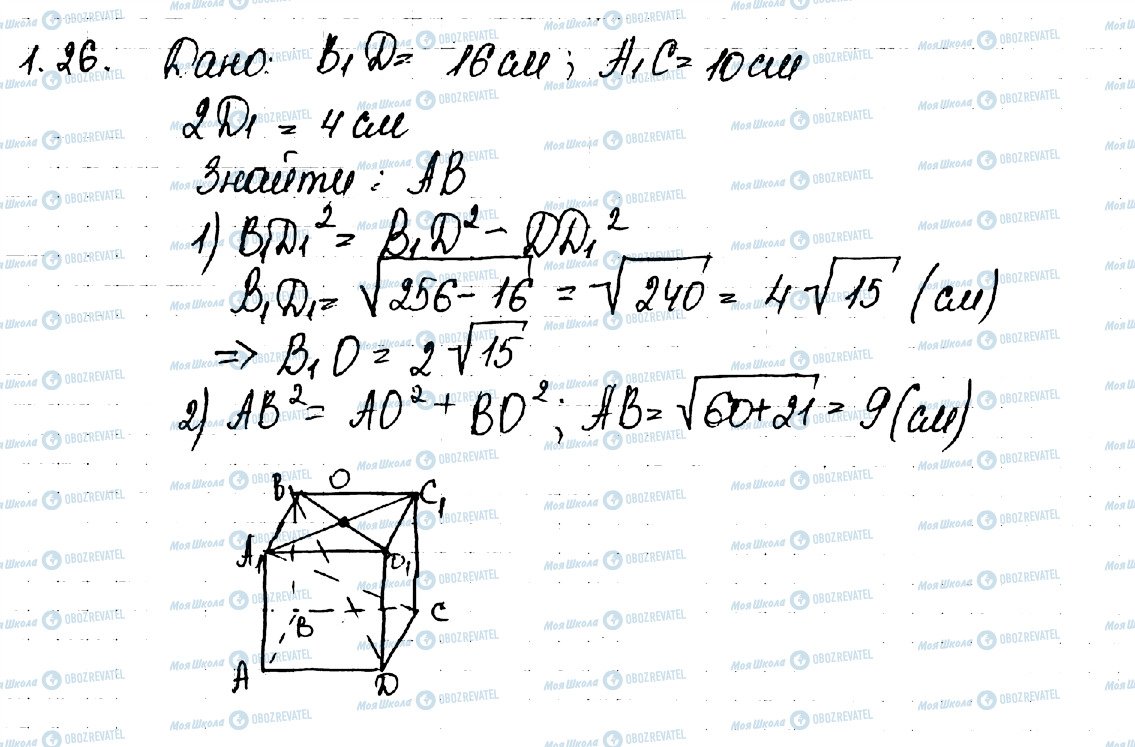 1.26. Дано: B₁D = 16 см; A₁C = 10 см
2D₁ = 4 см
Знайти: AB
1) B₁D₁² = B₁D² - DD₁²
B₁D₁ = √256-16 = √240 = 4√15 (см)
=> B₁O = 2√15
2) AB² = AO² + BO²; AB = √60+21 = 9 (см)
B₁ O C₁
A₁ D₁
B C
A D
МояШкола OBOZREVATEL